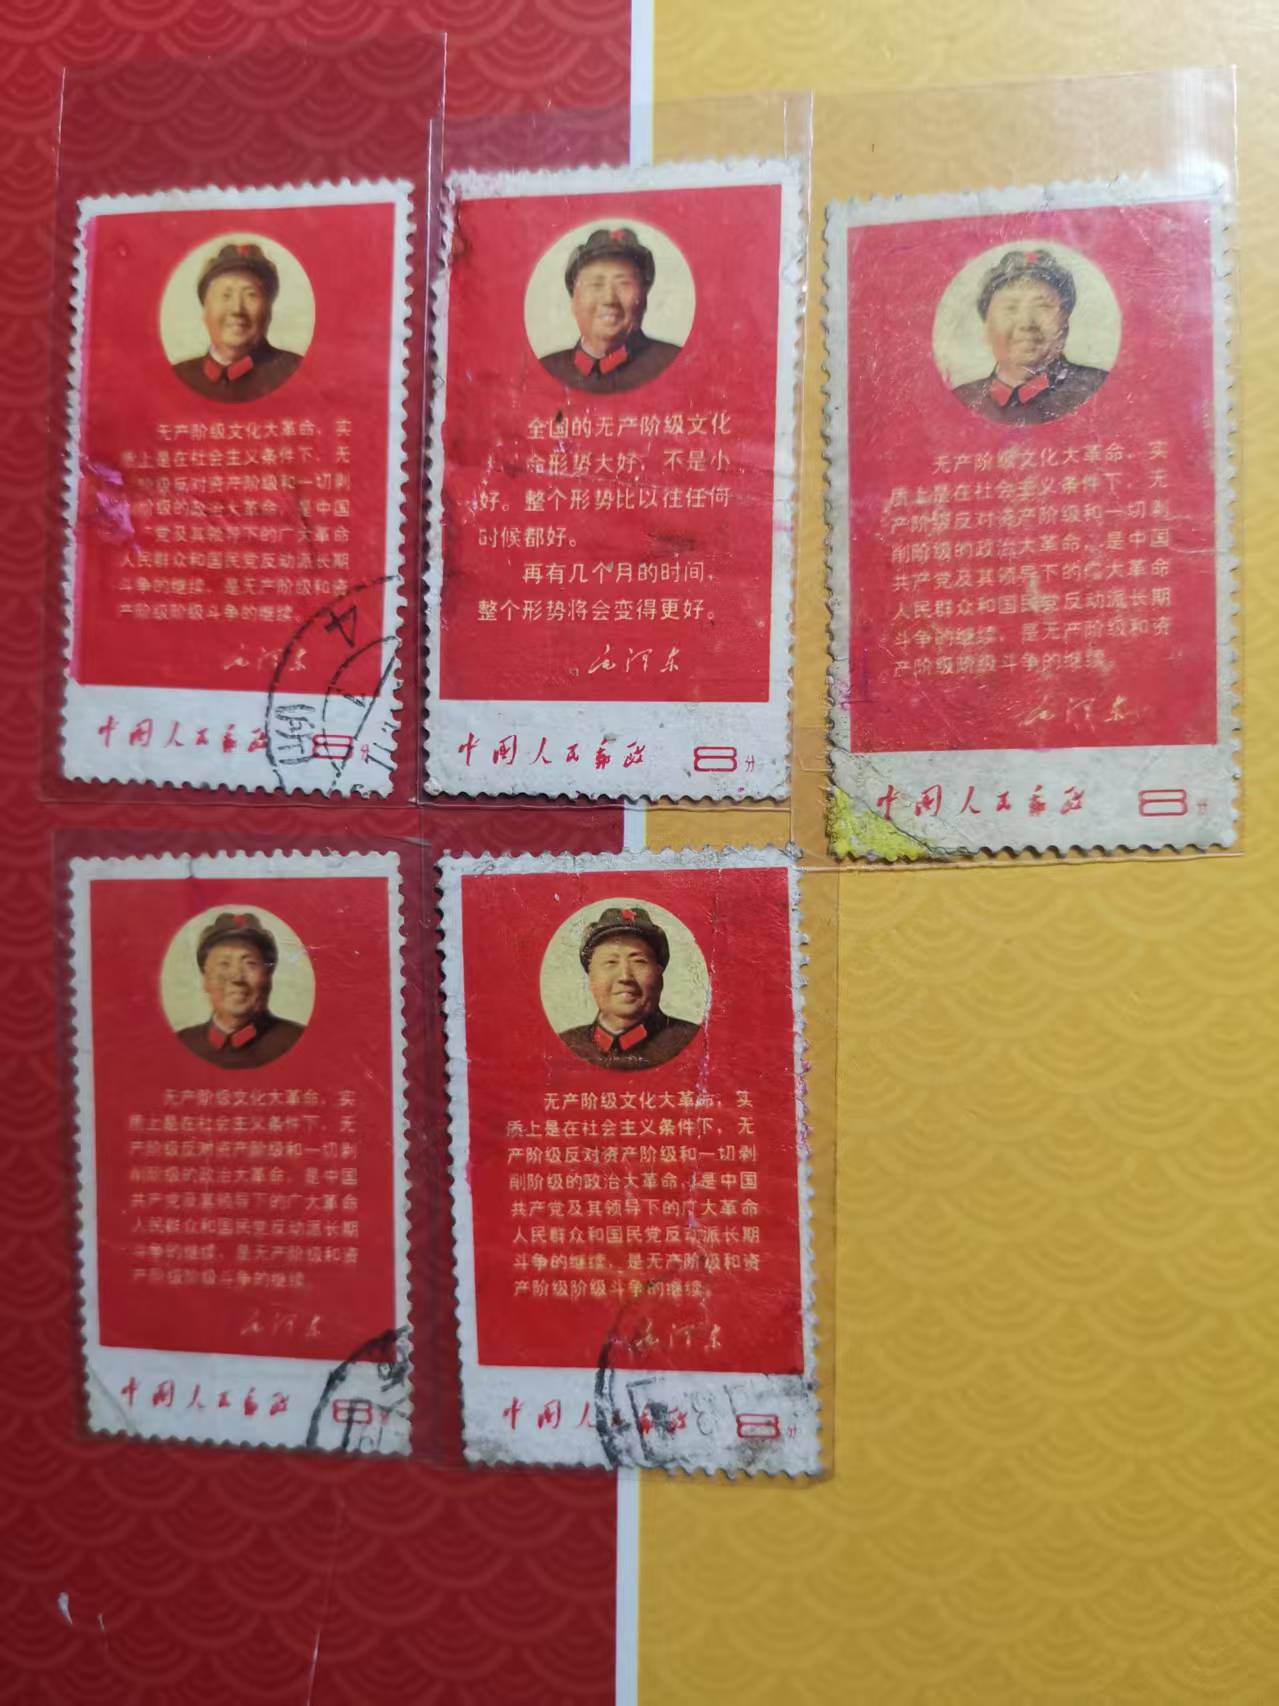 无产阶级文化大革命，实
质上是在社会主义条件下，无
阶级反对资产阶级和一切剥
削阶级的政治大革命，是中国
产党及其领导下的广大革命
人民群众和国民党反动派长期
斗争的继续，是无产阶级和资
产阶级阶级斗争的继续。
毛泽东
4
中国人民邮政 8分
全国的无产阶级文化
命形势大好，不是小
好。整个形势比以往任何
时候都好。
再有几个月的时间，
整个形势将会变得更好。
毛泽东
中国人民邮政 8分
无产阶级文化大革命，实
质上是在社会主义条件下，无
产阶级反对资产阶级和一切剥
削阶级的政治大革命，是中国
共产党及其领导下的广大革命
人民群众和国民党反动派长期
斗争的继续，是无产阶级和资
产阶级阶级斗争的继续。
毛泽东
中国人民邮政 8分
无产阶级文化大革命，实
质上是在社会主义条件下，无
产阶级反对资产阶级和一切剥
削阶级的政治大革命，是中国
共产党及其领导下的广大革命
人民群众和国民党反动派长期
斗争的继续，是无产阶级和资
产阶级阶级斗争的继续。
毛泽东
中国人民邮政 8分
无产阶级文化大革命，实
质上是在社会主义条件下，无
产阶级反对资产阶级和一切剥
削阶级的政治大革命，是中国
共产党及其领导下的广大革命
人民群众和国民党反动派长期
斗争的继续，是无产阶级和资
产阶级阶级斗争的继续。
毛泽东
中国人民邮政 8分